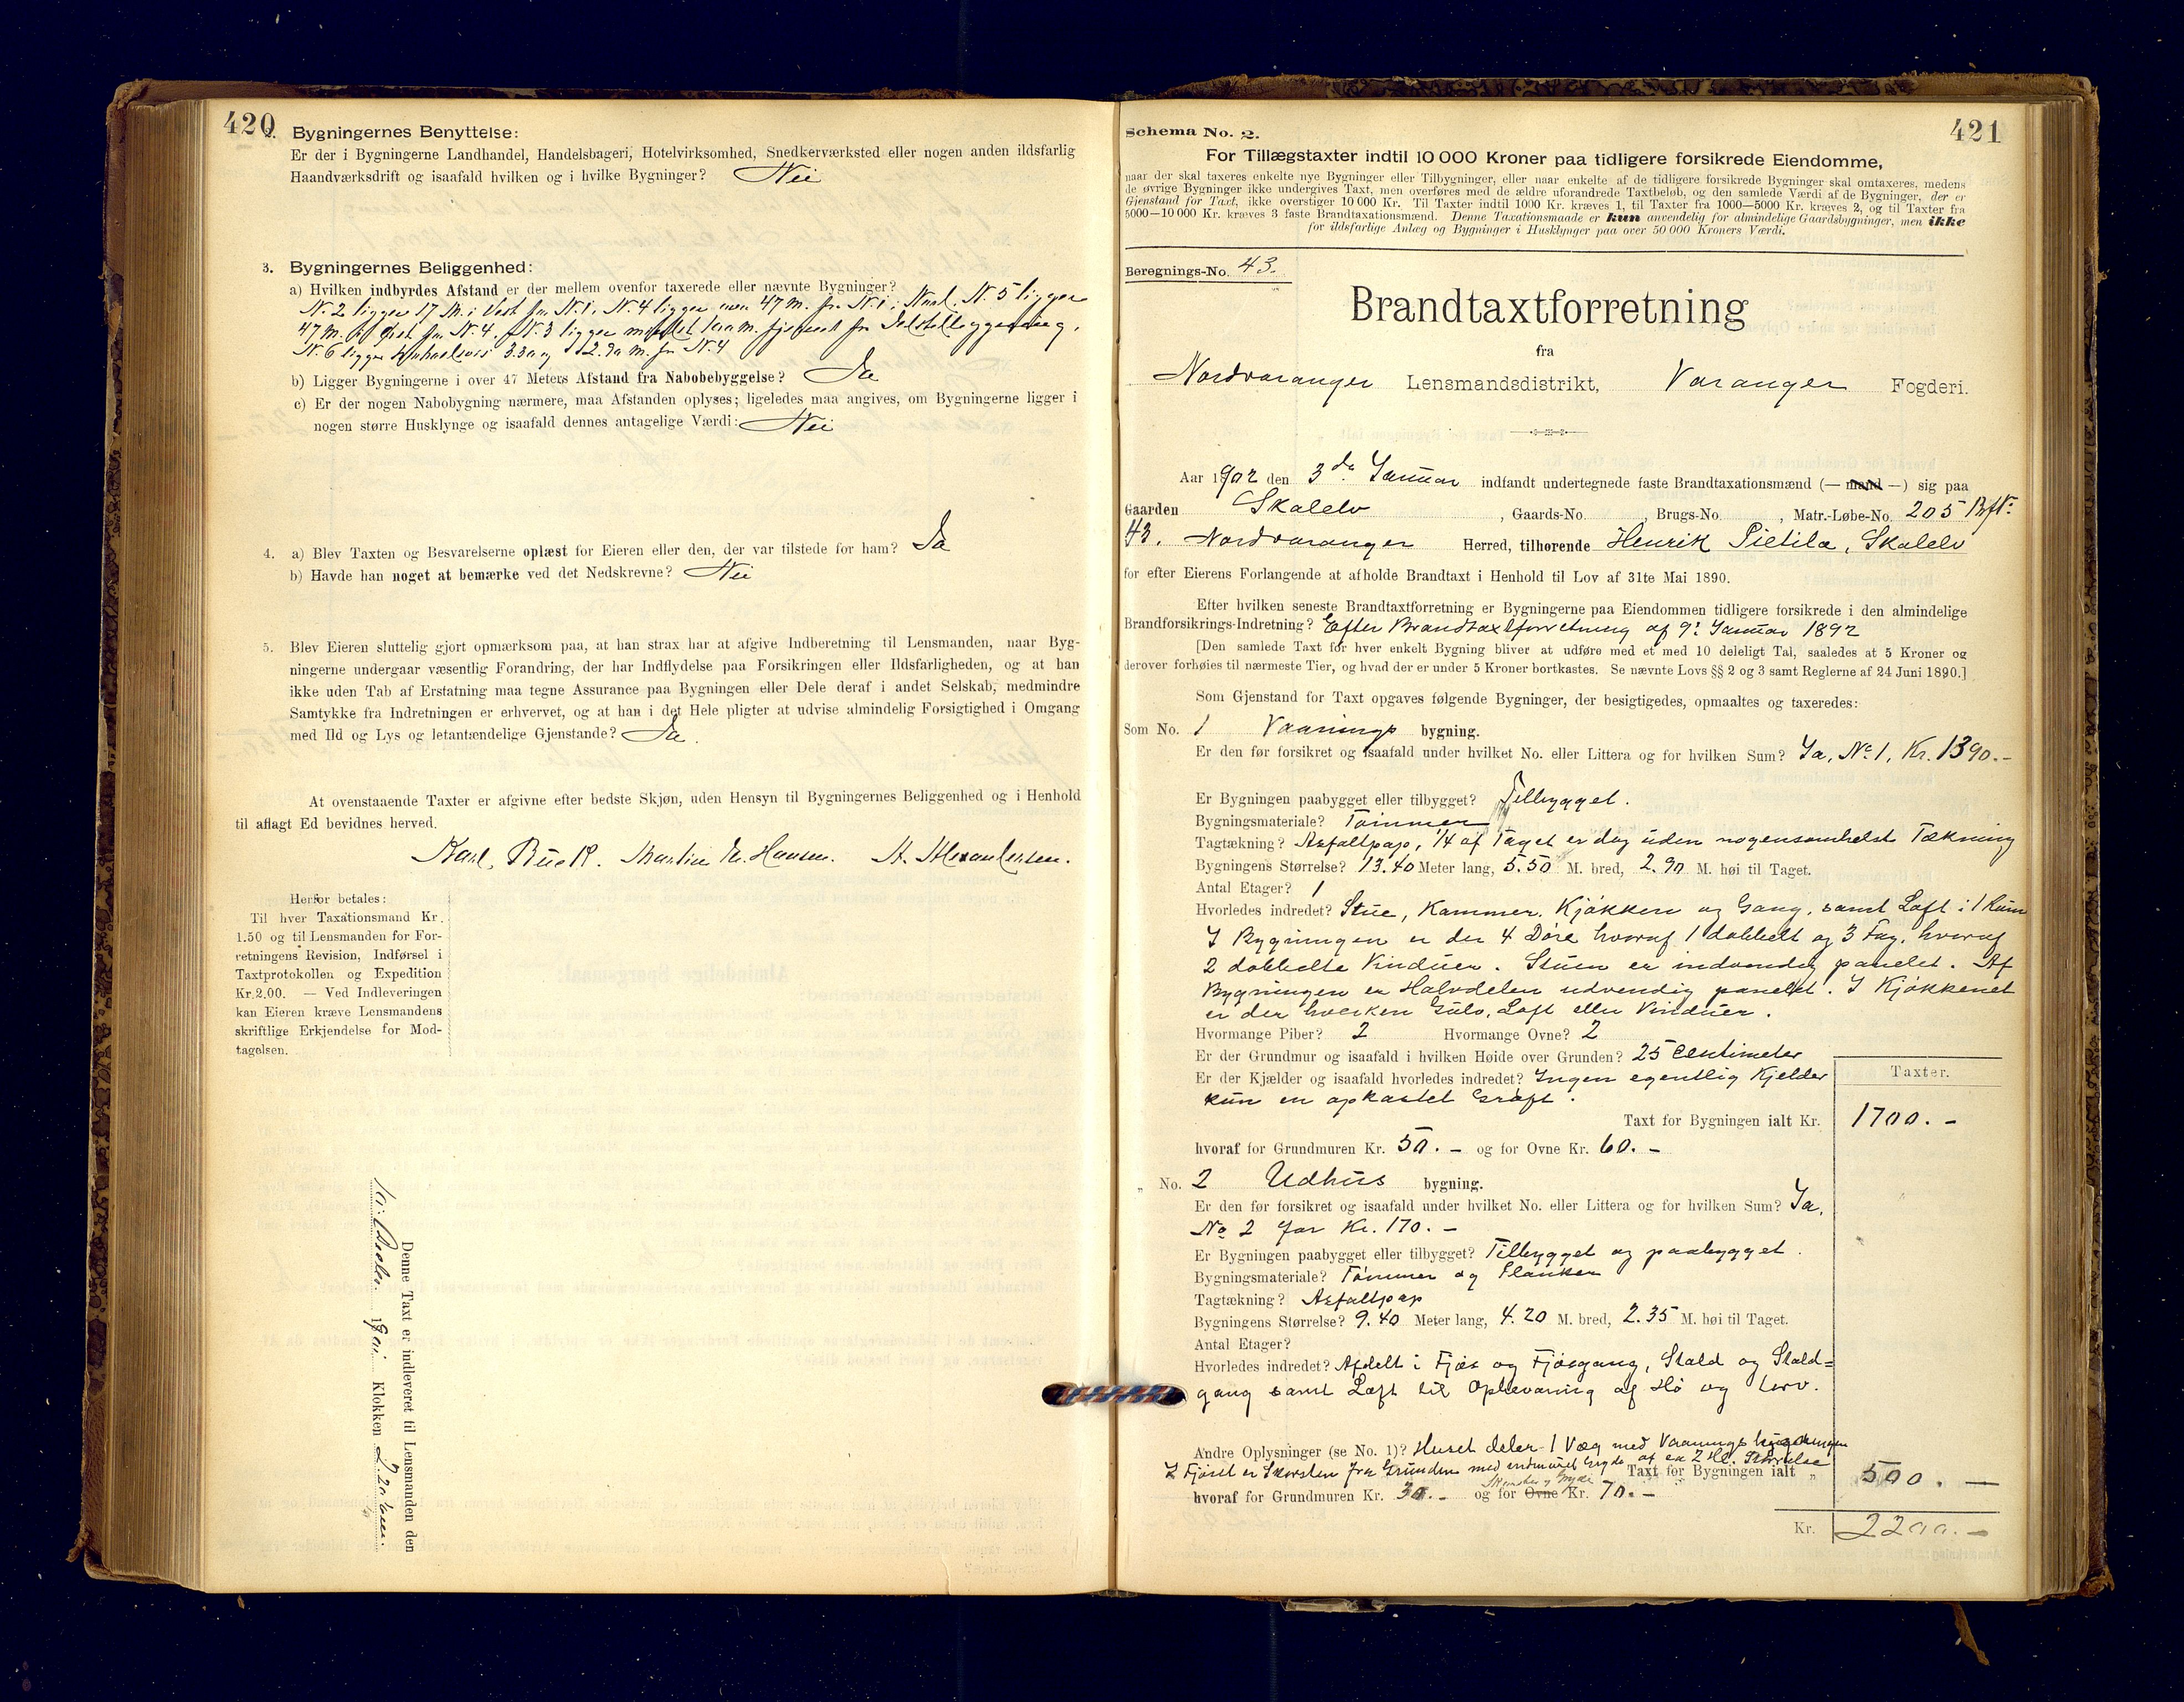 420
2. Bygningernes Benyttelse:
Er der i Bygningerne Landhandel, Handelsbageri, Hotelvirksomhed, Snedkerværksted eller nogen anden ildsfarlig
Haandværksdrift og isaafald hvilken og i hvilke Bygninger? Nei
3. Bygningernes Beliggenhed:
a) Hvilken indbyrdes Afstand er der mellem ovenfor taxerede eller nævnte Bygninger?
N. 2 ligger 17 M. i Vest fra N. 1, N. 4 ligger over 47 M. fra N. 1 i Nord. N. 5 ligger
47 M. i fra N. 4. N. 3 ligger
N. 6 ligger M. fra N. 4
b) Ligger Bygningerne i over 47 Meters Afstand fra Nabobebyggelse? Ja
c) Er der nogen Nabobygning nærmere, maa Afstanden oplyses; ligeledes maa angives, om Bygningerne ligger i
nogen større Husklynge og isaafald dennes antagelige Værdi: Nei
4. a) Blev Taxten og Besvarelserne oplæst for Eieren eller den, der var tilstede for ham? Ja
b) Havde han noget at bemærke ved det Nedskrevne? Nei
5. Blev Eieren sluttelig gjort opmærksom paa, at han strax har at afgive Indberetning til Lensmanden, naar Byg-
ningerne undergaar væsentlig Forandring, der har Indflydelse paa Forsikringen eller Ildsfarligheden, og at han
ikke uden Tab af Erstatning maa tegne Assurance paa Bygningen eller Dele deraf i andet Selskab, medmindre
Samtykke fra Indretningen er erhvervet, og at han i det Hele pligter at udvise almindelig Forsigtighed i Omgang
med Ild og Lys og letantændelige Gjenstande? Ja.
At ovenstaaende Taxter er afgivne efter bedste Skjøn, uden Hensyn til Bygningernes Beliggenhed og i Henhold
til aflagt Ed bevidnes herved.
Karl Buck. Martin Hansen. A. Alexandersen.
Herfor betales:
Til hver Taxationsmand Kr.
1.50 og til Lensmanden for For-
retningens Revision, Indførsel i
Taxtprotokollen og Expedition
Kr.2.00. — Ved Indleveringen
kan Eieren kræve Lensmandens
skriftlige Erkjendelse for Mod-
tagelsen.
Denne Taxt er indleveret til Lensmanden den
19 Klokken
421
Schema No. 2.
For Tillægstaxter indtil 10 000 Kroner paa tidligere forsikrede Eiendomme,
naar der skal taxeres enkelte nye Bygninger eller Tilbygninger, eller naar enkelte af de tidligere forsikrede Bygninger skal omtaxeres, medens
de øvrige Bygninger ikke undergives Taxt, men overføres med de ældre uforandrede Taxtbeløb, og den samlede Værdi af de Bygninger, der er
Gjenstand for Taxt, ikke overstiger 10 000 Kr. Til Taxter indtil 1000 Kr. kræves 1, til Taxter fra 1000—5000 Kr. kræves 2, og til Taxter fra
5000—10 000 Kr. kræves 3 faste Brandtaxationsmænd. Denne Taxationsmaade er kun anvendelig for almindelige Gaardsbygninger, men ikke
for ildsfarlige Anlæg og Bygninger i Husklynger paa over 50 000 Kroners Værdi.
Beregnings-No. 43.
Brandtaxtforretning
fra
Nordvaranger Lensmandsdistrikt, Varanger Fogderi.
Aar 1902 den 3de Januar indfandt undertegnede faste Brandtaxationsmænd (— mand —) sig paa
Gaarden Skalelv, Gaards-No. , Brugs-No. , Matr.-Løbe-No. 205 Bf No
43. Nordvaranger Herred, tilhørende Henrik Pietilæ, Skalelv
for efter Eierens Forlangende at afholde Brandtaxt i Henhold til Lov af 31te Mai 1890.
Efter hvilken seneste Brandtaxtforretning er Bygningerne paa Eiendommen tidligere forsikrede i den almindelige
Brandforsikrings-Indretning? Efter Brandtaxtforretning af 9. Januar 1892
[Den samlede Taxt for hver enkelt Bygning bliver at udføre med et med 10 deleligt Tal, saaledes at 5 Kroner og
derover forhøies til nærmeste Tier, og hvad der er under 5 Kroner bortkastes. Se nævnte Lovs §§ 2 og 3 samt Reglerne af 24 Juni 1890.]
Som Gjenstand for Taxt opgaves følgende Bygninger, der besigtigedes, opmaaltes og taxeredes:
Som No. 1 Vaanings bygning.
Er den før forsikret og isaafald under hvilket No. eller Littera og for hvilken Sum? Ja, No 1, Kr. 1390.-
Er Bygningen paabygget eller tilbygget? Tilbygget.
Bygningsmateriale? Tømmer
Tagtækning? Asfaltpap, 1/4 af Taget er dog uden nogensomhelst Tækning
Bygningens Størrelse? 13.40 Meter lang, 5.50 M. bred, 2.90 M. høi til Taget.
Antal Etager? 1
Hvorledes indredet? Stue, Kammer, Kjøkken og Gang, samt Loft i 1 Rum
I Bygningen er der 4 Døre hvoraf 1 dobbelt og 3 Fag, hvoraf
2 dobbelte Vinduer. Stuen er indvendig panelet. Af
Bygningen er Halvdelen udvendig panelet. I Kjøkkenet
er der hverken Gulv, Loft eller Vinduer.
Hvormange Piber? 2 Hvormange Ovne? 2
Er der Grundmur og isaafald i hvilken Høide over Grunden? 25 Centimeter
Er der Kjælder og isaafald hvorledes indredet? Ingen egentlig Kjelder
kun en opkastet Grøft.
Taxter.
Taxt for Bygningen ialt Kr. 1700.-
hvoraf for Grundmuren Kr. 50.- og for Ovne Kr. 60.-
„ No. 2 Udhus bygning.
Er den før forsikret og isaafald under hvilket No. eller Littera og for hvilken Sum? Ja,
No 2 for Kr. 170.-
Er Bygningen paabygget eller tilbygget? Tilbygget og paabygget.
Bygningsmateriale? Tømmer og Planker
Tagtækning? Asfaltpap
Bygningens Størrelse? 9.40 Meter lang, 4.20 M. bred, 2.35 M. høi til Taget.
Antal Etager?
Hvorledes indredet? Afdelt i Fjøs og Fjøsgang, Stald og Stald=
gang samt Loft til Opbevaring af Hø og torv.
Andre Oplysninger (se No. 1)? Huset deler 1 Væg med Vaaningsbygningen
I Fjøset er Skorsten fra Grunden med indmuret Gryde af ca 2 Hl. Størrelse
Taxt for Bygningen ialt „ 500.-
hvoraf for Grundmuren Kr. 30.- og for Ovne Skorsten og Gryde Kr. 70.-
Kr. 2200.-